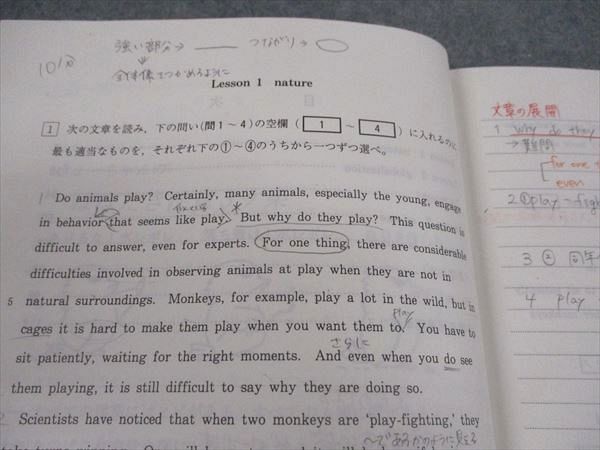 強い部分→ つながり→
10/8
全体像をつかめるように
Lesson 1 nature
1 次の文章を読み,下の問い(問1~4)の空欄( 1 ~ 4 )に入れるのに
最も適当なものを,それぞれ下の①~④のうちから一つずつ選べ。
1 Do animals play? Certainly, many animals, especially the young, engage
in behavior that seems like play. * But why do they play? This question is
difficult to answer, even for experts. For one thing, there are considerable
difficulties involved in observing animals at play when they are not in
5 natural surroundings. Monkeys, for example, play a lot in the wild, but in
play
cages it is hard to make them play when you want them to. You have to
さらに
sit patiently, waiting for the right moments. And even when you do see
them playing, it is still difficult to say why they are doing so.
2 Scientists have noticed that when two monkeys are 'play-fighting,' they
~であるかのように見える
文章の展開
1 why do they
→難問
for one t
even
2 ① play-figh
3 ②
4 play